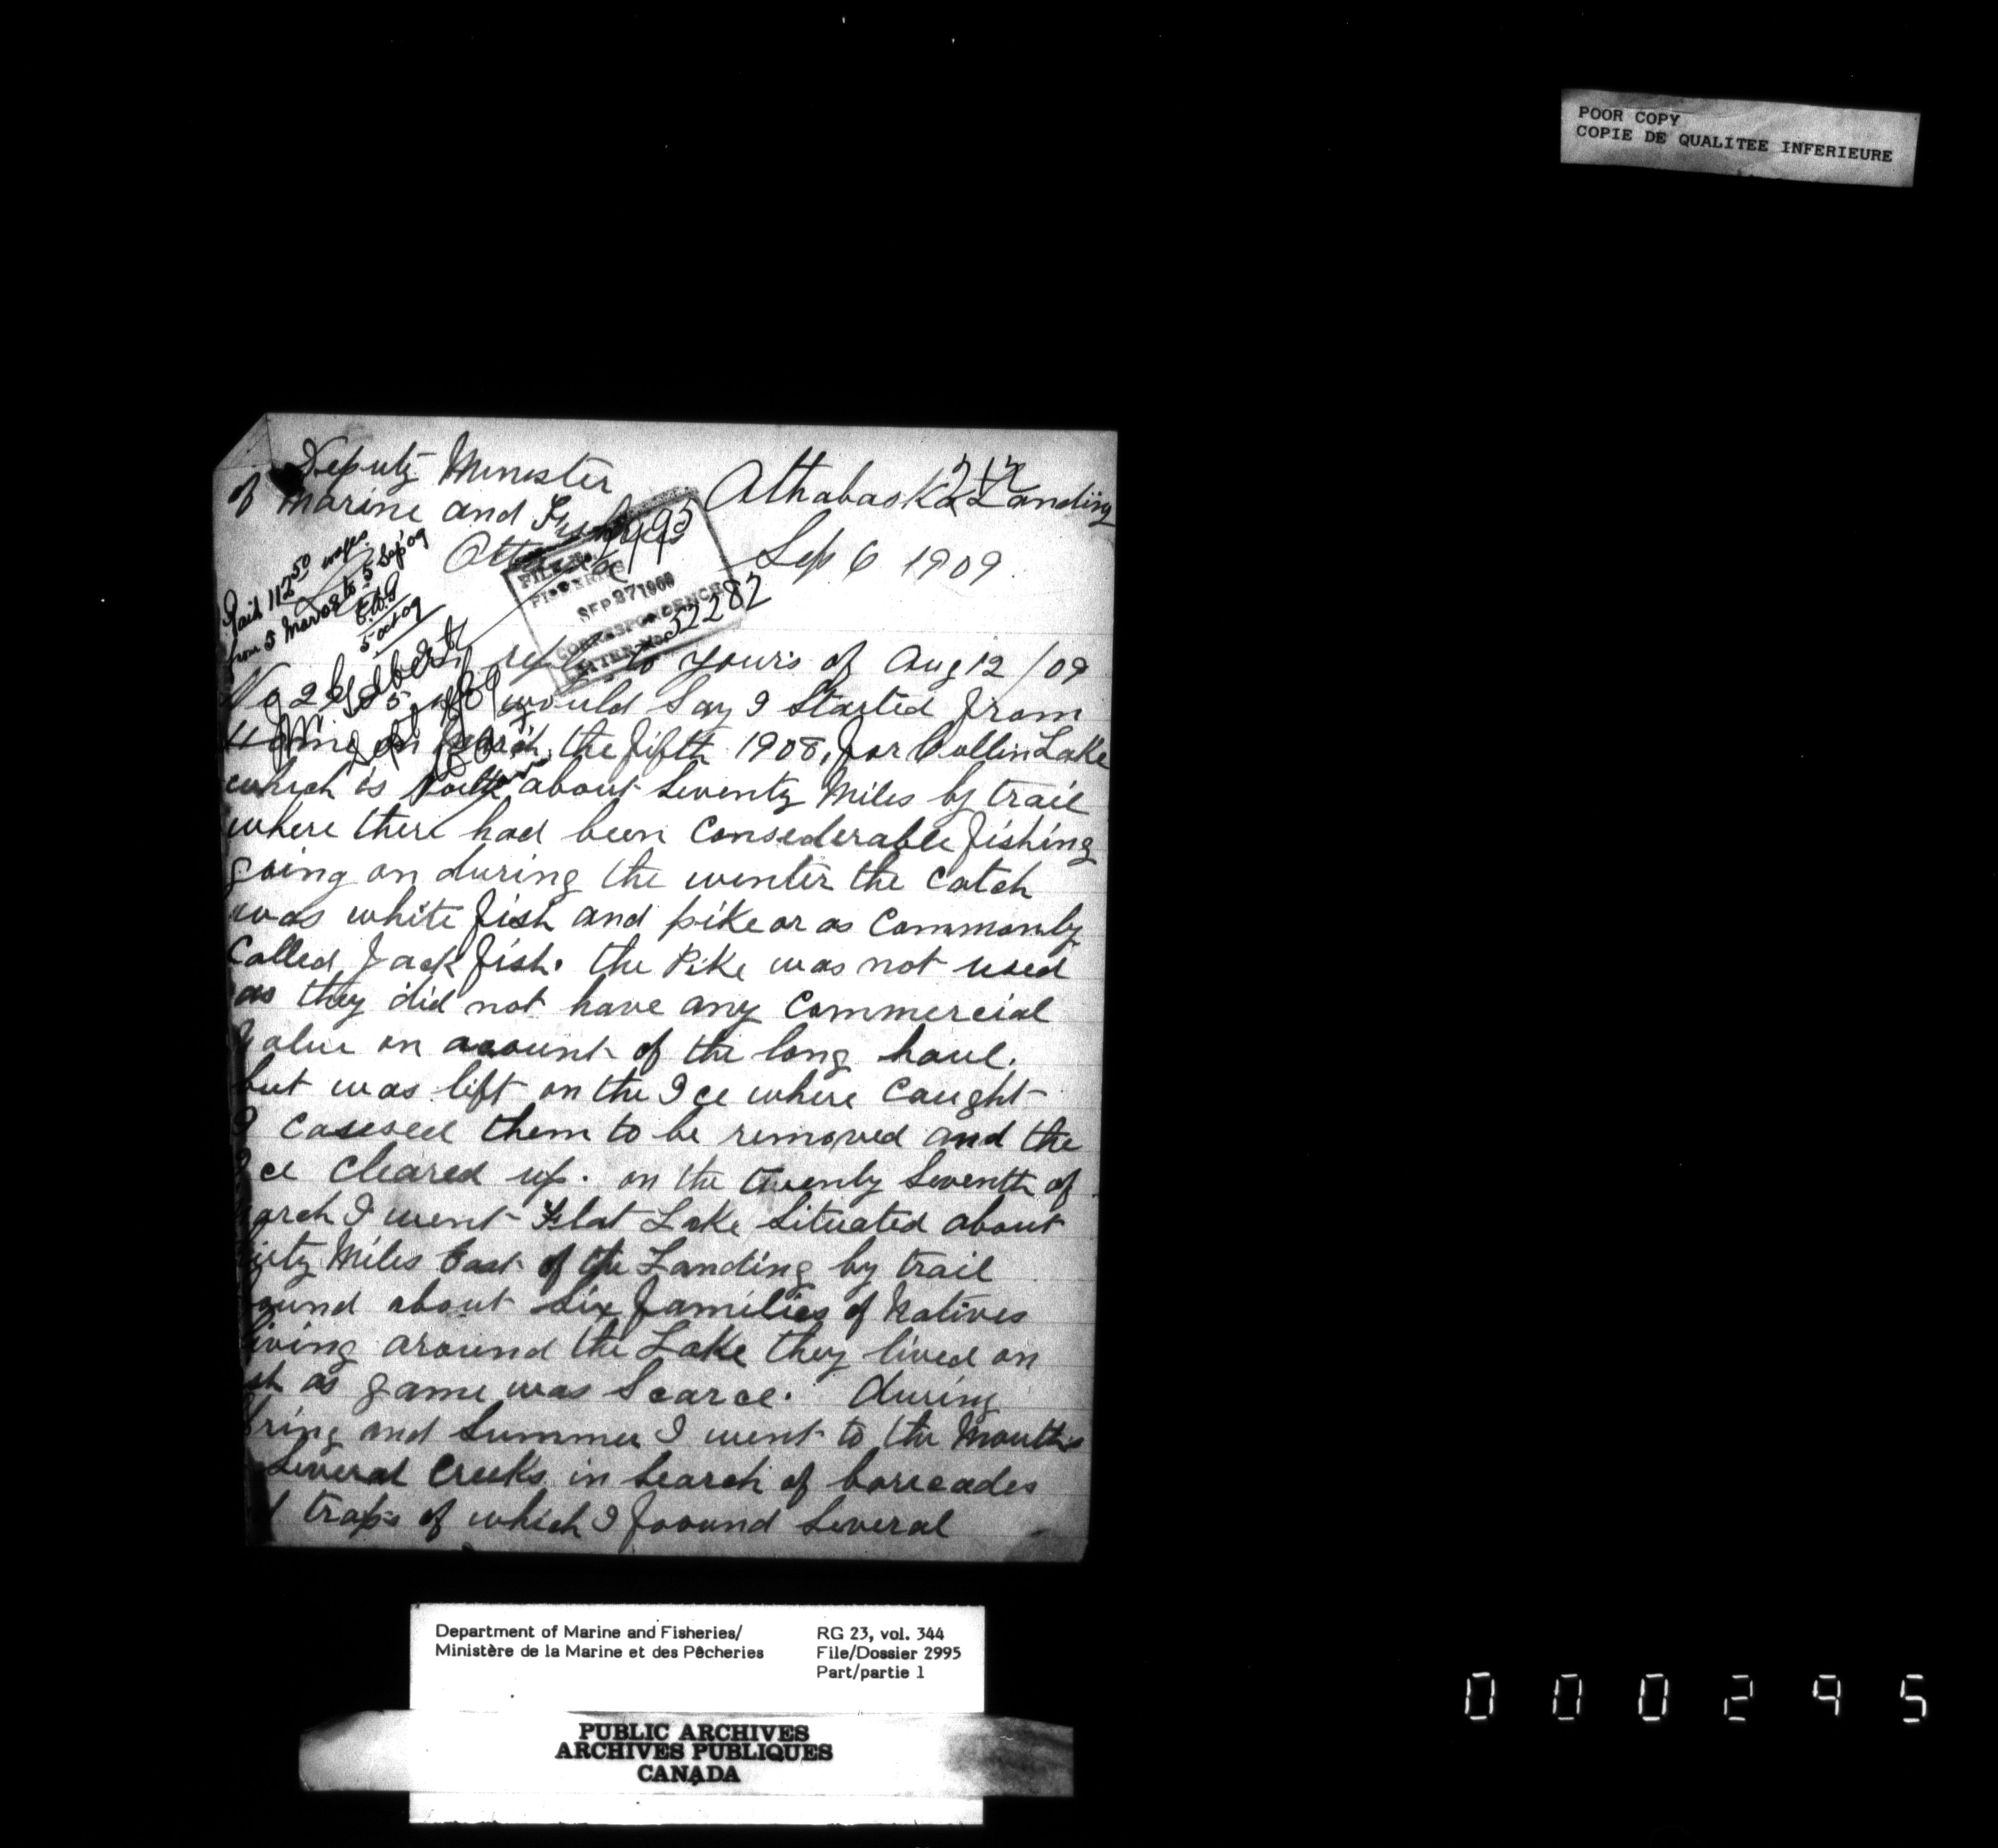 POOR COPY
COPIE DE QUALITEE INFERIEURE
Deputy Minister
of Marine and Fisheries
Ottawa
Athabaska Landing
Sep 6 1909.
212
Paid 112 50 wages
from 5 Mar 09 to 5 Sep '09
5 Oct 09
FILE No. 2995
FISHERIES
SEP 27 1909
CORRESPONDENCE
LETTER No. 32282
reply to yours of Aug 12/09
would Say I Started from
the fifth 1908, for
which is South about Seventy Miles by trail
where there had been Consederable fishing
going on during the wenter the Catch
was white fish and pike or as Commonly
Called Jack fish. the Pike was not used
as they did not have any Commercial
Value on acount of the long haul.
but was lift on the Ice where Caught
I Casesed them to be removed and the
Ice Cleared up. on the twenty Seventh of
March I went Flat Lake Situated about
Miles East of the Landing by trail
found about Six families of Natives
living around the Lake they lived on
fish as game was Scarce. During
Spring and Summer I went to the Mouths
Several Creeks in Search of barreades
traps of which I foound Several
Department of Marine and Fisheries/
Ministère de la Marine et des Pêcheries
RG 23, vol. 344
File/Dossier 2995
Part/partie 1
PUBLIC ARCHIVES
ARCHIVES PUBLIQUES
CANADA
000295